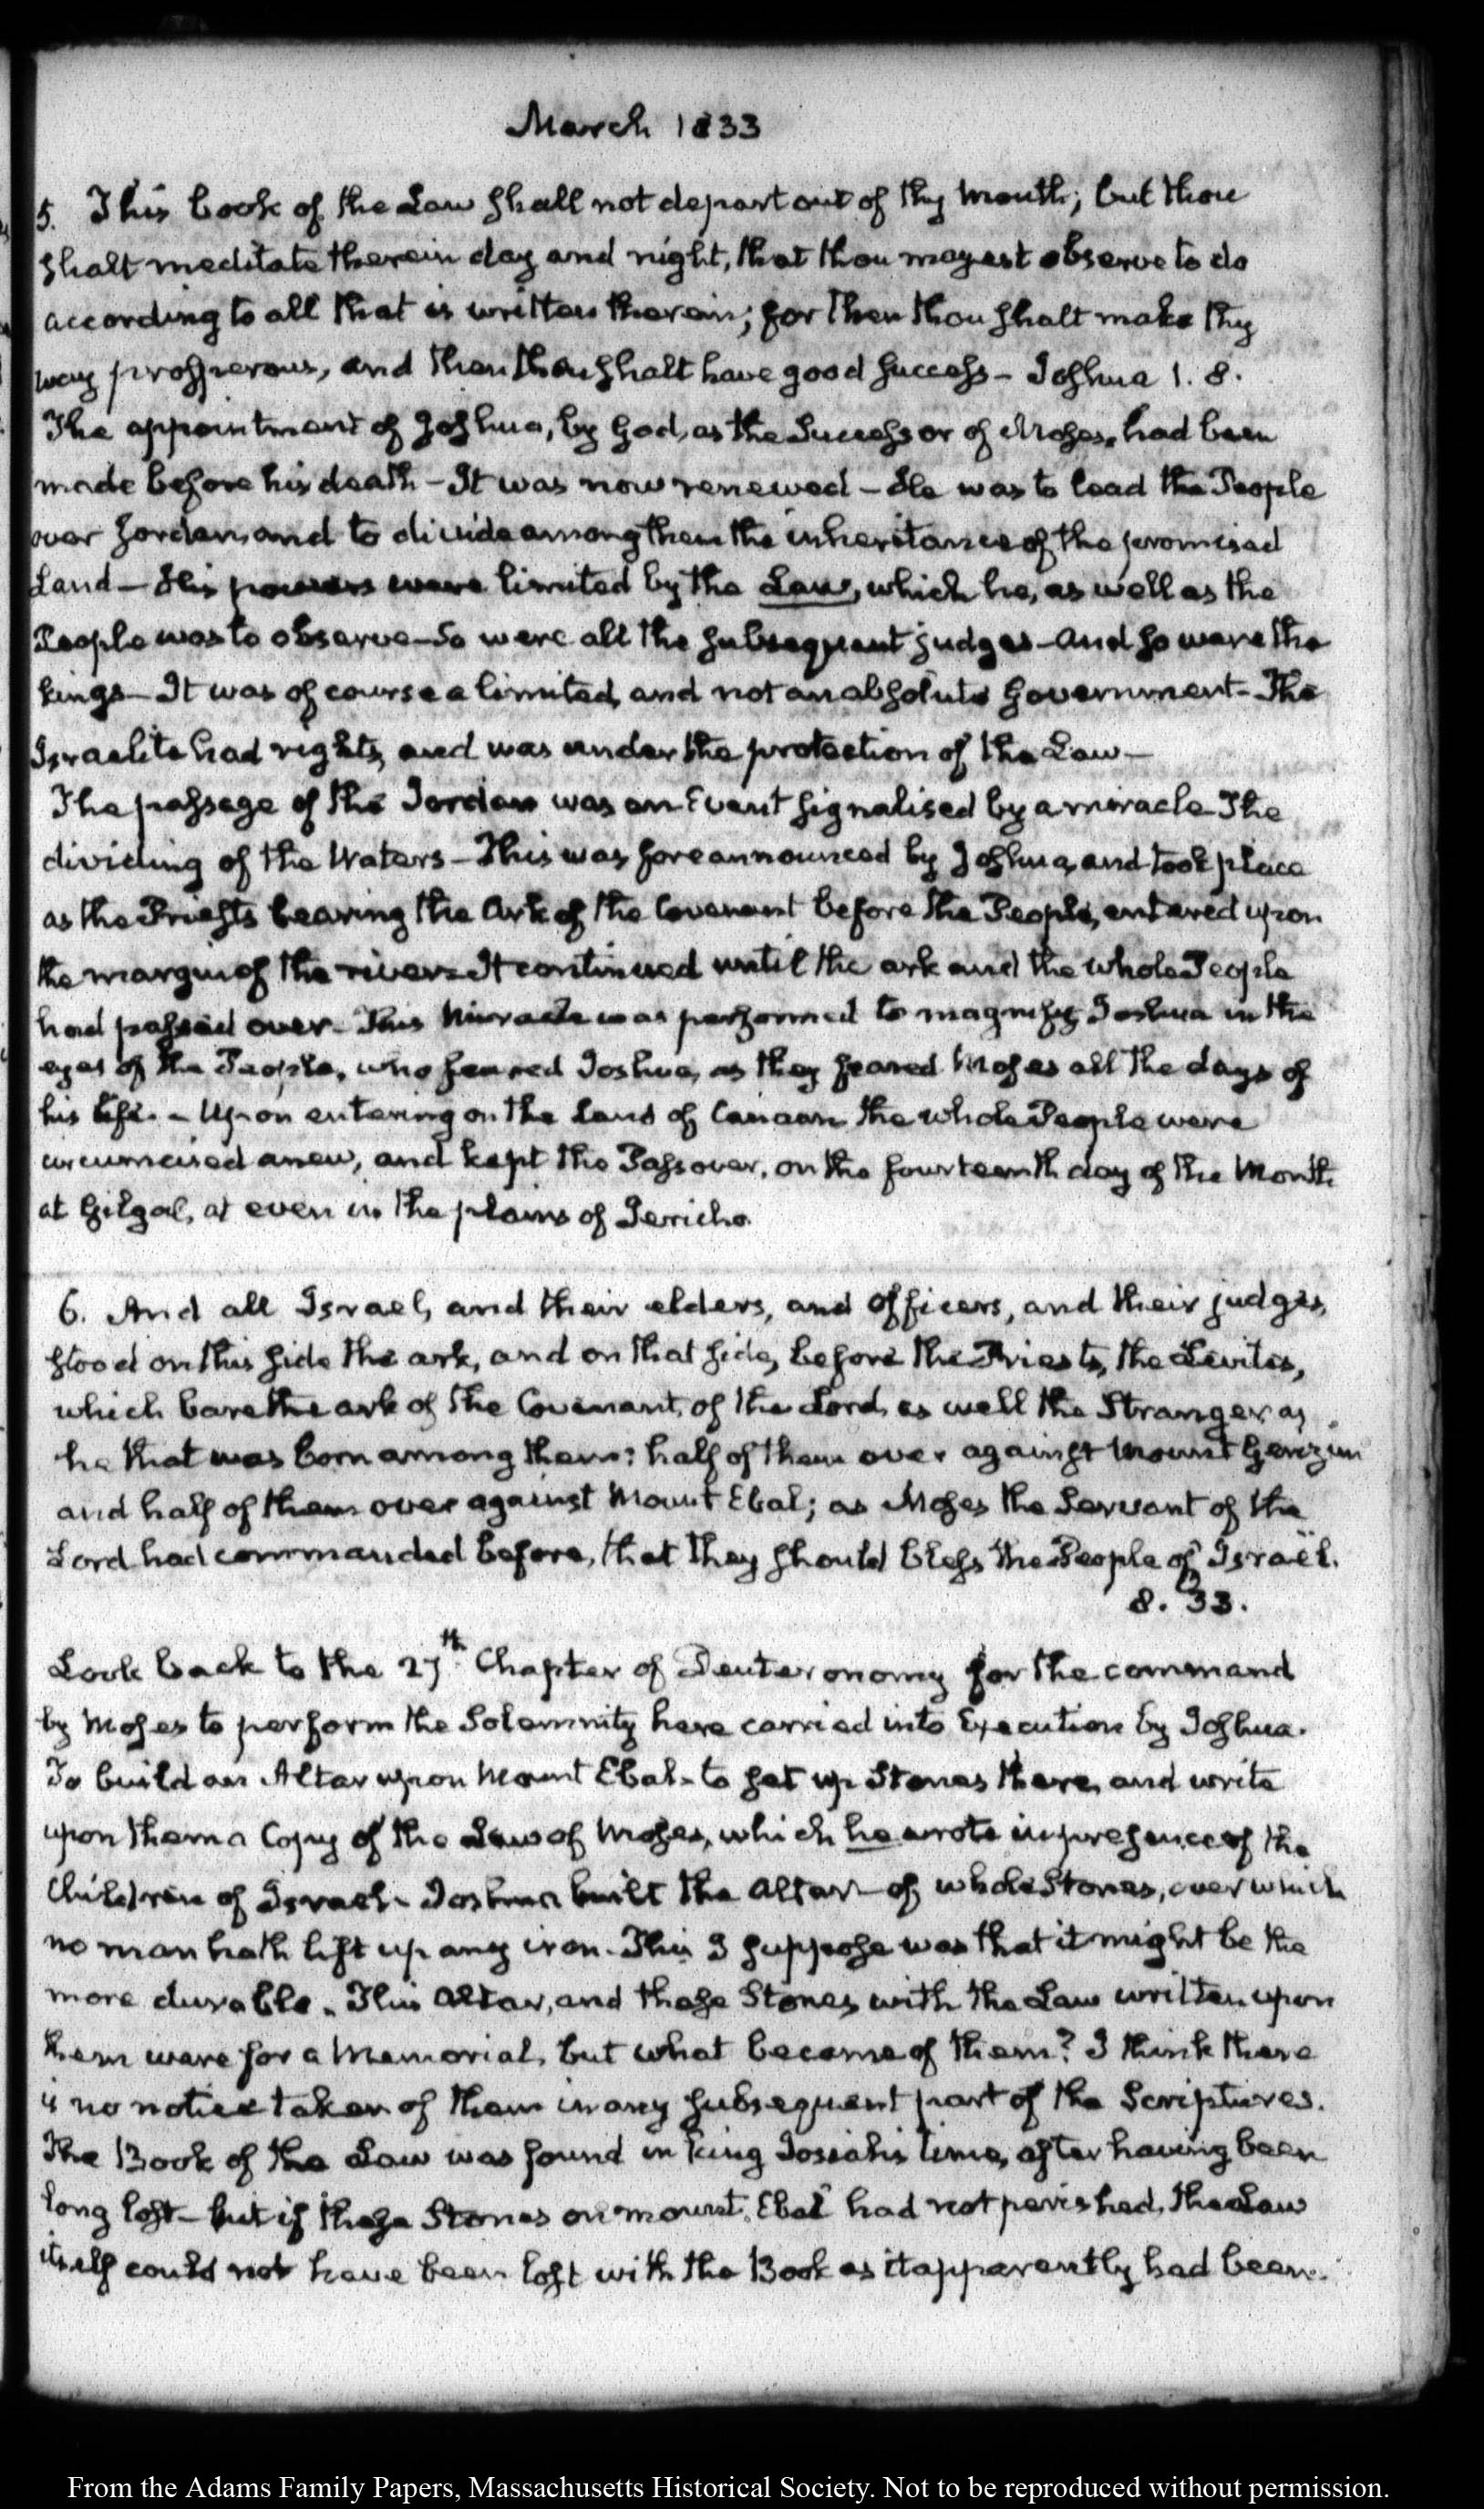 March 1833
5. This book of the Law shall not depart out of thy mouth; but thou
shalt meditate therein day and night, that thou mayest observe to do
according to all that is written therein; for then thou shalt make thy
way prosperous, and then thou shalt have good success – Joshua 1. 8.
The appointment of Joshua, by God, as the Successor of Moses, had been
made before his death – It was now renewed – He was to lead the People
over Jordan, and to divide among them the inheritance of the promised
Land – His powers were limited by the Law, which he, as well as the
People was to observe – So were all the subsequent judges – And so were the
kings – It was of course a limited, and not an absolute Government – The
Israelite had rights, and was under the protection of the Law –
The passage of the Jordan was an Event signalised by a miracle – The
dividing of the Waters – This was foreannounced by Joshua, and took place
as the Priests bearing the Ark of the Covenant before the People, entered upon
the margin of the river – It continued until the ark and the whole People
had passed over – This Miracle was performed to magnify Joshua in the
eyes of the People, who feared Joshua, as they feared Moses all the days of
his life. – Upon entering on the Land of Canaan the whole People were
circumcised anew, and kept the Passover, on the fourteenth day of the Month
at Gilgal, at even in the plains of Jericho.
6. And all Israel, and their elders, and officers, and their judges,
stood on this side the ark, and on that side, before the Priests, the Levites,
which bare the ark of the Covenant, of the Lord, as well the Stranger as
he that was born among them: half of them over against Mount Gerizim
and half of them over against Mount Ebal; as Moses the Servant of the
Lord had commanded before, that they should bless the People of Israël.
8. 33.
Look back to the 27th. Chapter of Deuteronomy for the command
by Moses to perform the Solemnity here carried into Execution by Joshua.
To build an Altar upon Mount Ebal – to set up Stones there, and write
upon them a Copy of the Law of Moses, which he wrote in presence of the
Children of Israel – Joshua built the Altar – of whole Stones, over which
no man hath lift up any iron – This I suppose was that it might be the
more durable. This Altar, and those Stones with the Law written upon
them were for a Memorial, but what became of them? I think there
is no notice taken of them in any subsequent part of the Scriptures.
The Book of the Law was found in king Josiah's time, after having been
long lost – but if these Stones on mount Ebal had not perished, the Law
itself could not have been lost with the Book as it apparently had been.
From the Adams Family Papers, Massachusetts Historical Society. Not to be reproduced without permission.